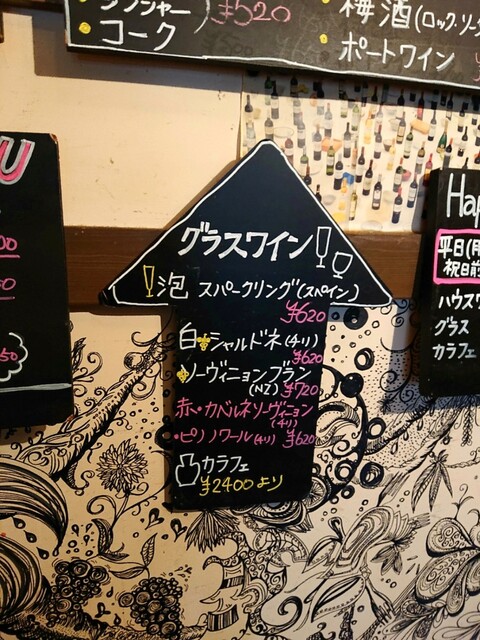 ¥520
コーク
梅酒(ロック.ソーダ
ポートワイン
U
00
50
グラスワイン
泡 スパークリング(スペイン)
¥620
白 シャルドネ(チリ)
¥620
ソーヴィニョンブラン
(NZ) ¥720
赤・カベルネソーヴィニョン
(チリ)
・ピノノワール(チリ) ¥620
カラフェ
¥2400より
Hap
平日(月
祝日前
ハウスワ
グラス
カラフェ